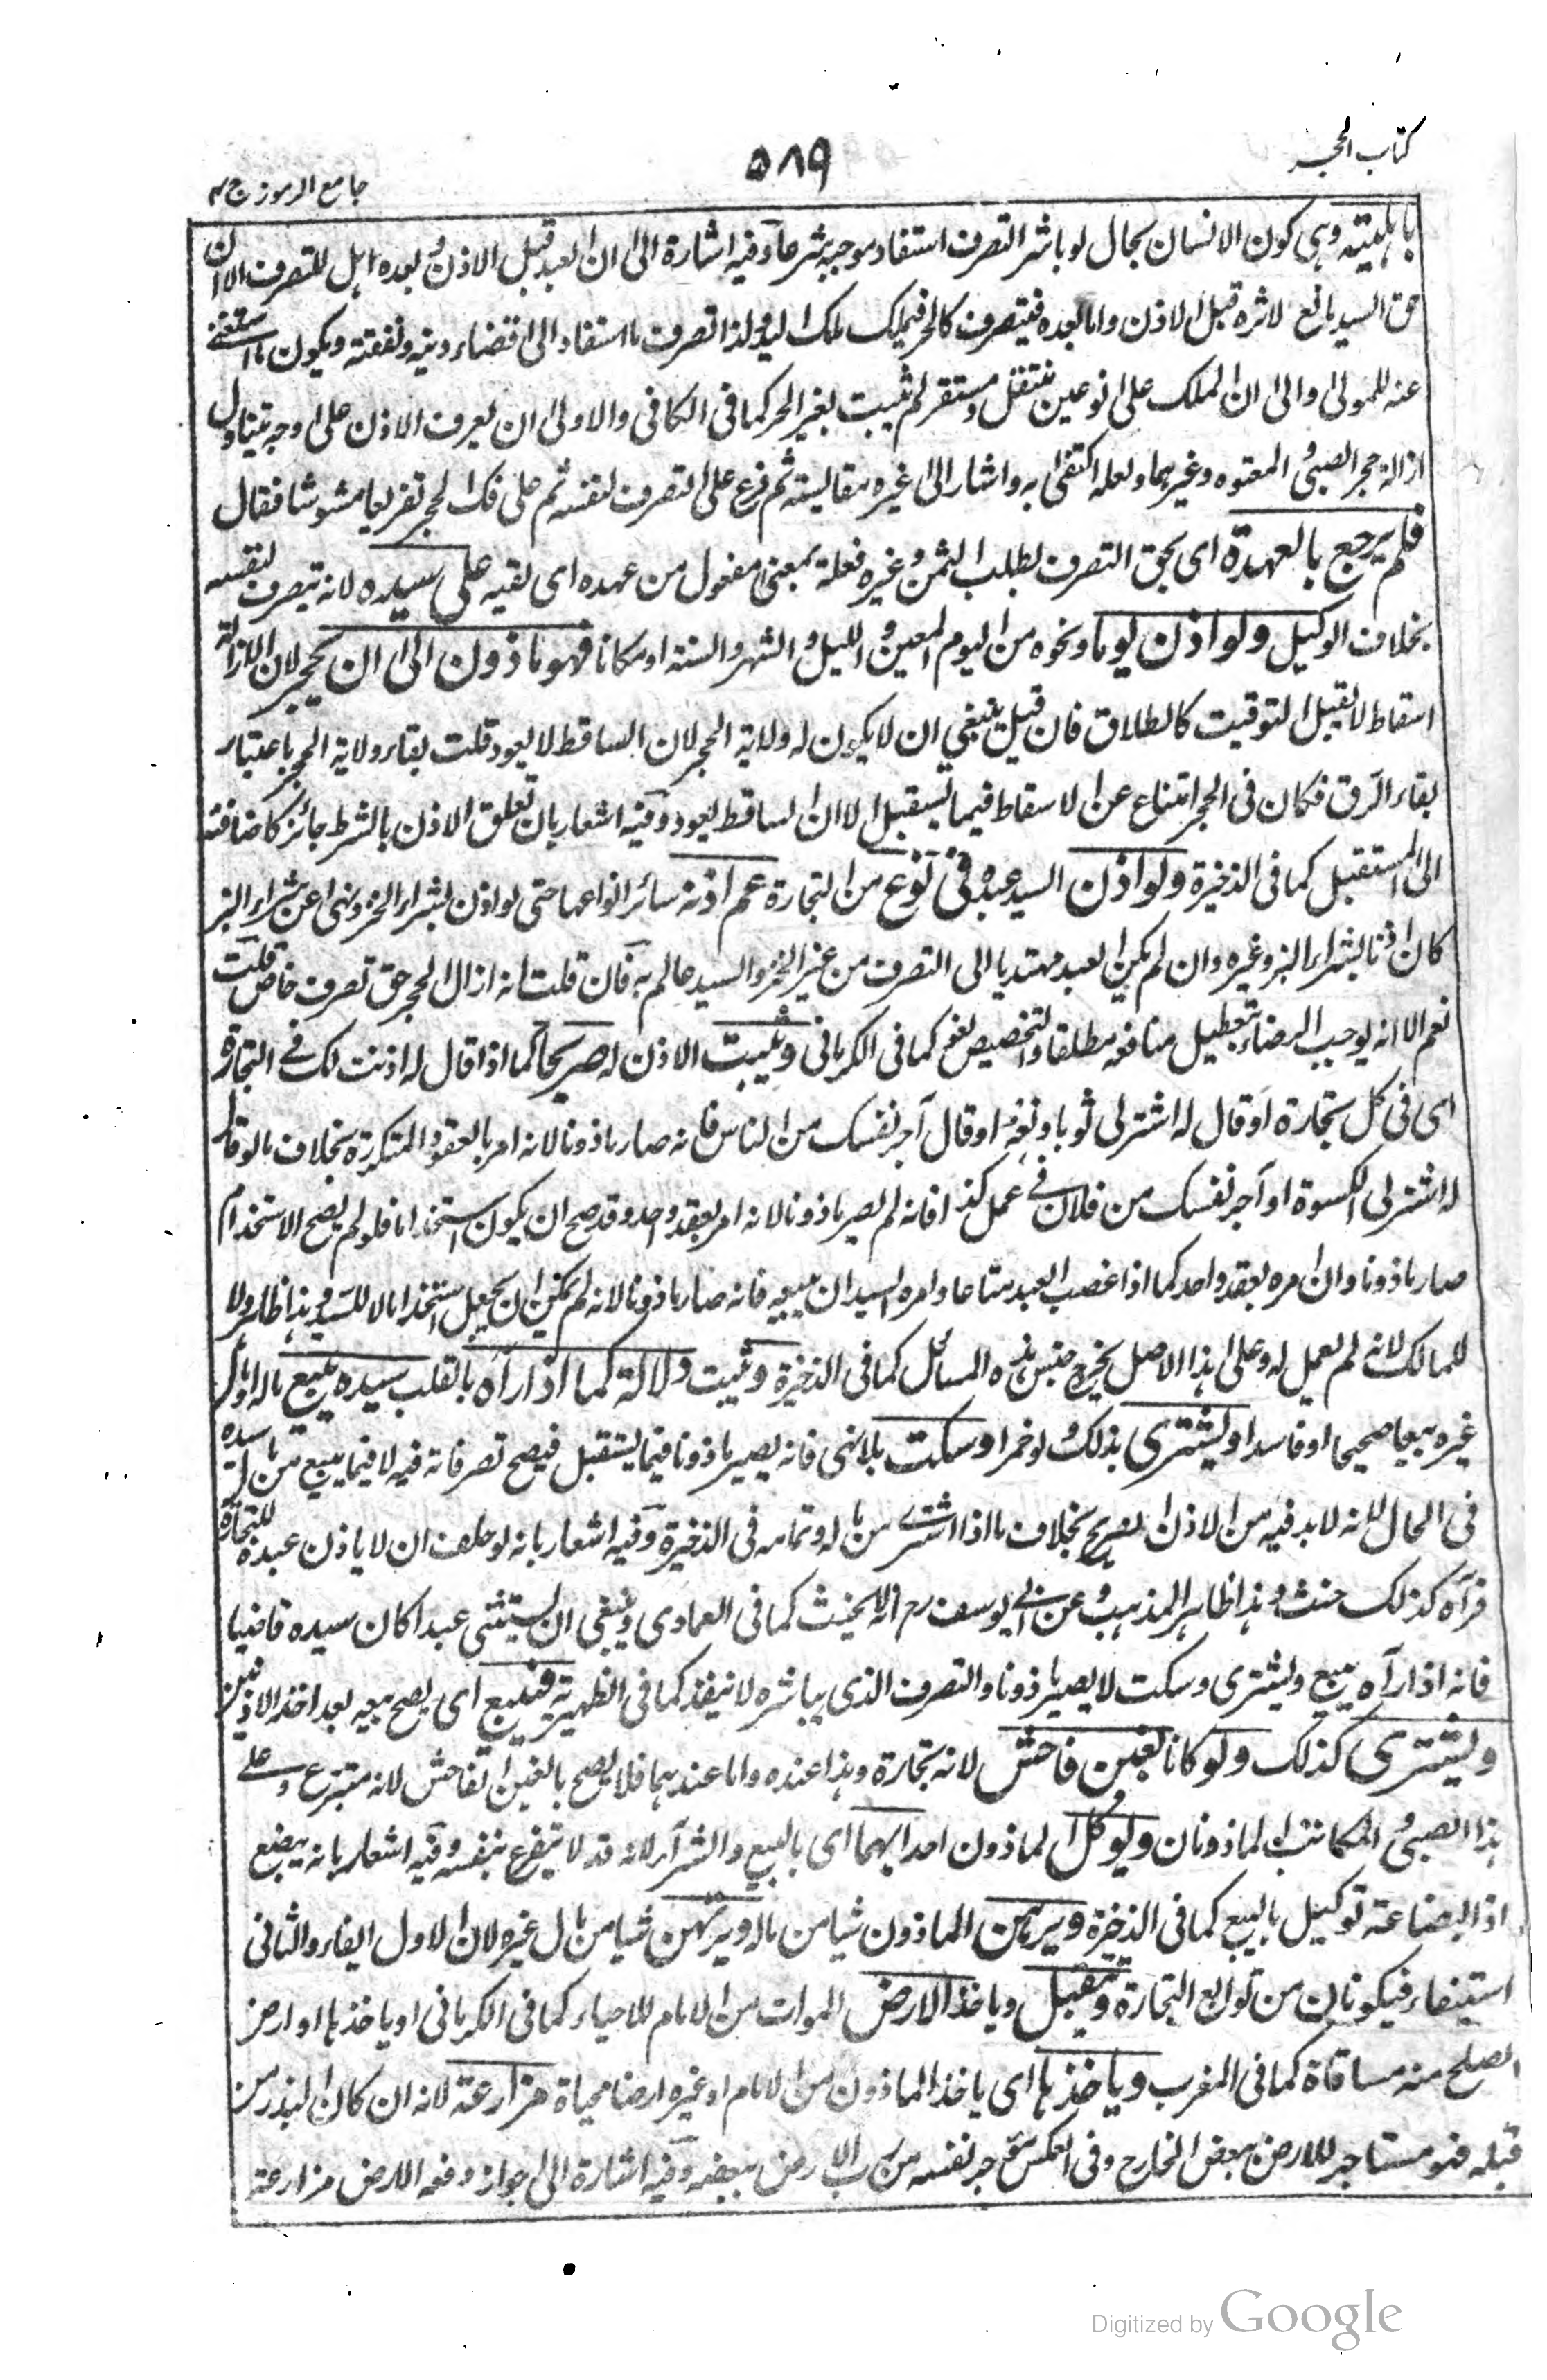 كتاب الحجر
٥٨٩
جامع الرموز ج ٣
باهليته وهى كون الانسان بحال لو باشر التصرف استفاد موجبه شرعا وفيه اشارة الى ان العبد قبل الاذن وبعده اهل للتصرف الا ان
حق السيد مانع لاثره قبل الاذن واما بعده فيتصرف كالحر فيملك ملك اليد ولذا تصرف ما استفاد الى اقتضاء دينه ونفقته ويكون ما استغنى
عنه للمولى والى ان الملك على نوعين منتقل ومستقر لم يثبت لغير الحر كما فى الكافى والاولى ان يعرف الاذن على وجه يتناول
ازالة حجر الصبى والمعتوه وغيرهما ولعله اكتفى به واشار الى غيره بمقايسته ثم فرع على التصرف لنفسه ثم على فك الحجر تفريعا مشوشا فقال
فلم يرجع بالعهدة اى بحق التصرف لطلب الثمن وغيره فعلة بمعنى مفعول من عهده اى لقيه على سيده لانه يتصرف لنفسه
بخلاف الوكيل ولو اذن يوما ونحوه من اليوم المعين والليل والشهر والسنة او مكانا فهو ماذون الى ان يحجر لان الازالة
اسقاط لا يقبل التوقيت كالطلاق فان قيل ينبغي ان لا يكون له ولاية الحجر لان الساقط لا يعود قلت بقاء ولاية الحجر باعتبار
بقاء الرق فكان فى الحجر امتناع عن الاسقاط فيما يستقبل لا ان الساقط يعود وفيه اشعار بان تعلق الاذن بالشرط جائز كاضافته
الى المستقبل كما فى الذخيرة ولو اذن السيد عبده فى نوع من التجارة عم اذنه سائر انواعها حتى لو اذن بشراء الخز ونهى عن شراء البز
كان اذنا بشراء البز وغيره وان لم يكن العبد مهتديا الى التصرف من غير الخز والسيد عالم به فان قلت انه ازال الحجر حق تصرف خاص قلت
نعم الا انه يوجب الرضاء بتعطيل منافعه مطلقا والتخصيص لغو كما فى الكرمانى ويثبت الاذن له صريحا كما اذا قال له اذنت لك فى التجارة
اى فى كل تجارة او قال له اشتر لى ثوبا وبعه او قال آجر نفسك من الناس فانه صار ماذونا لانه امر بالعقود المتكررة بخلاف ما لو قال
له اشتر لى الكسوة او آجر نفسك من فلان فى عمل كذا فانه لم يصر ماذونا لانه امر بعقد واحد وقد صح ان يكون استخداما فلو لم يصح الاستخدام
صار ماذونا وان امره بعقد واحد كما اذا غصب العبد متاعا وامره السيد ان يبيعه فانه صار ماذونا لانه لم يمكن ان يجعل استخداما لا للسيد وهذا ظاهر ولا
للمالك لانه لم يعمل له وعلى هذا الاصل يخرج جنس هذه المسائل كما فى الذخيرة ويثبت دلالة كما اذا رآه بالقلب سيده يبيع ماله او مال
غيره بيعا صحيحا او فاسدا ويشترى بذلك ولو خمرا وسكت بلا نهى فانه يصير ماذونا فيما يستقبل فيصح تصرفاته فيه لا فيما يبيع من مال سيده
فى الحال لانه لابد فيه من الاذن الصريح بخلاف ما اذا اشترى من ماله وتمامه فى الذخيرة وفيه اشعار بانه لو حلف ان لا ياذن عبده للتجارة
فرآه كذلك حنث وهذا ظاهر المذهب وعن ابى يوسف رح انه لا يحنث كما فى العمادى وينبغى ان يستثنى عبدا كان سيده قاضيا
فانه اذا رآه يبيع ويشترى وسكت لا يصير ماذونا والتصرف الذى يباشره لا ينفذ كما فى الظهيرية فيبيع اى يصح بيعه بعد اخذ الاذنين
ويشترى كذلك ولو كانا بغبن فاحش لانه تجارة وهذا عنده واما عندهما فلا يصح بالغبن الفاحش لانه متبرع وعلى
هذا الصبى والمكاتب الماذونان ويوكل الماذون احدا بهما اى بالبيع والشراء لانه قد لا يتفرغ بنفسه وفيه اشعار بانه يبضع
اذ البضاعة توكيل بالبيع كما فى الذخيرة ويرهن الماذون شيا من ماله ويرتهن شيا من مال غيره لان الاول ايفاء والثانى
استيفاء فيكونان من توابع التجارة ويتقبل وياخذ الارض الموات من الامام للاحياء كما فى الكرمانى او ياخذها او ارض
الصلح منه مساقاة كما فى المغرب وياخذها اى ياخذ الماذون من الامام او غيره ارضا محياة مزارعة لانه ان كان البذر من
قبله فهو مستاجر للارض ببعض الخارج وفى العكس آجر نفسه من رب الارض ببعضه وفيه اشارة الى جواز دفعه الارض مزارعة
Digitized by Google